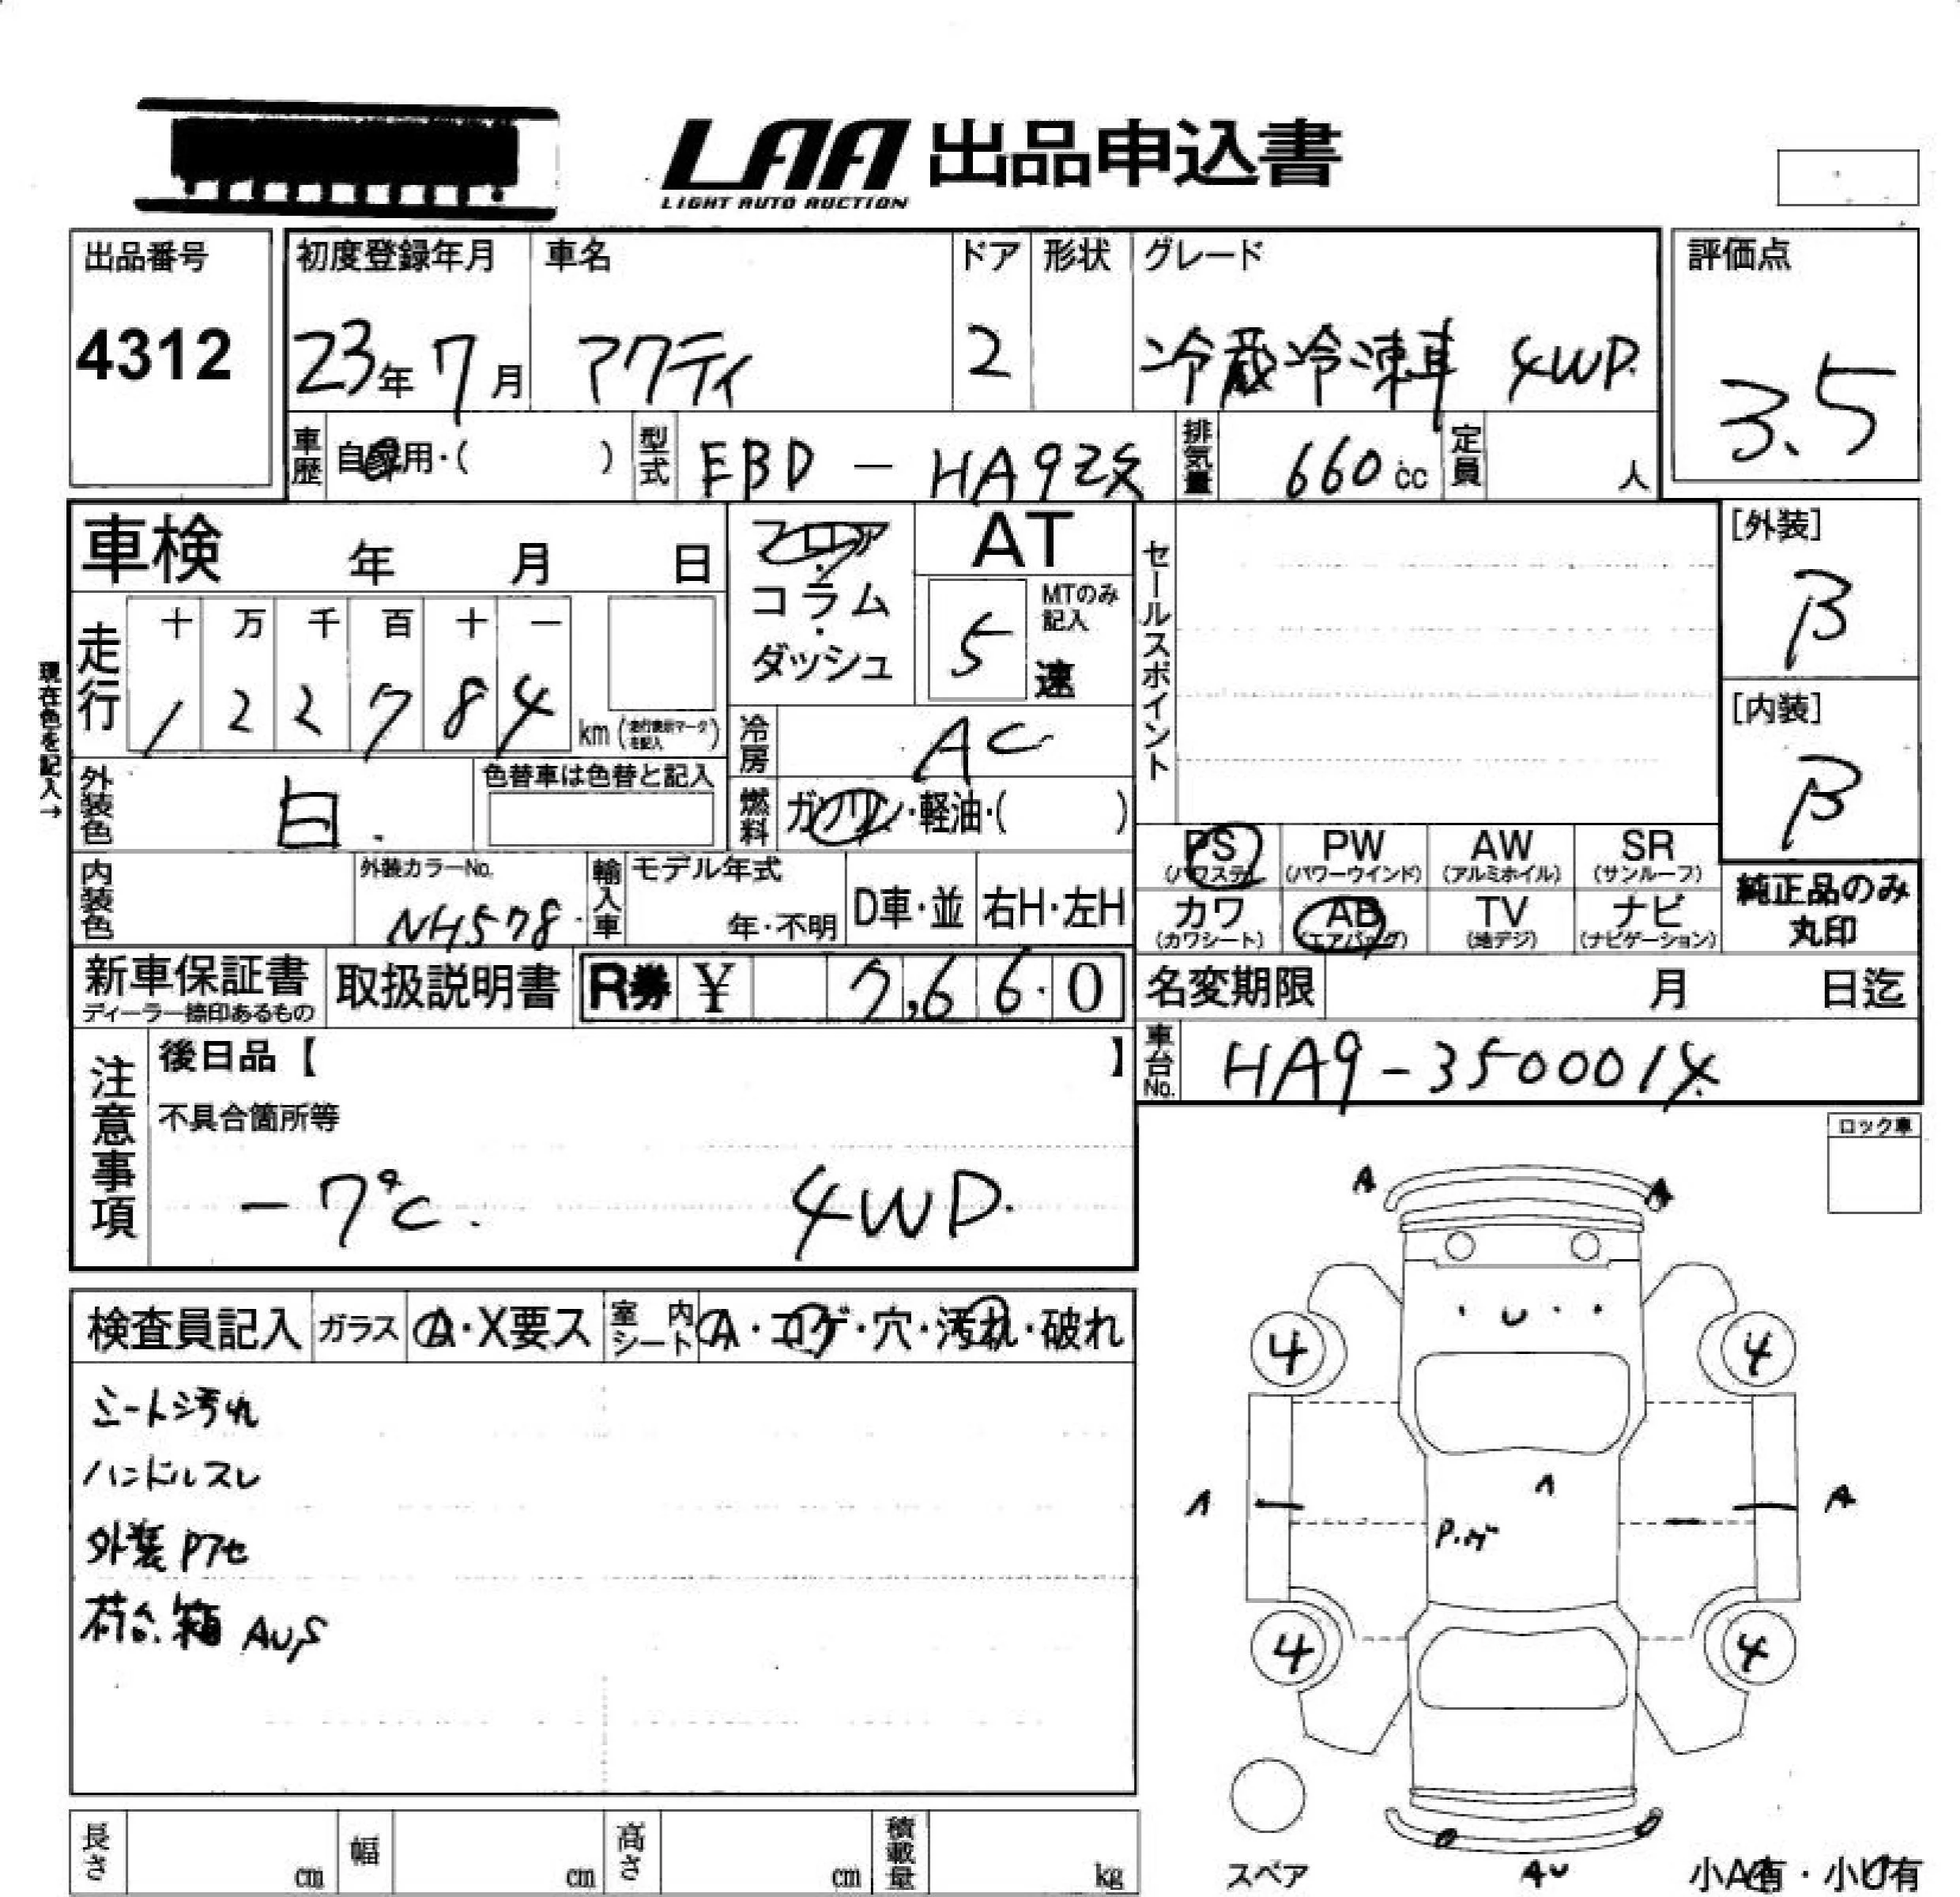 LAA 出品申込書
LIGHT AUTO AUCTION
出品番号
4312
初度登録年月 車名 ドア 形状 グレード
23年 7月 アクティ 2 冷蔵冷凍車 4WD.
評価点
3.5
車歴 自家用・( ) 型式 EBD - HA9改 排気量 660cc 定員 人
車検 年 月 日
フロア・コラム・ダッシュ
AT
5 MTのみ記入 速
セールスポイント
[外装]
B
[内装]
B
現在色を記入→
走行 十 万 千 百 十 一
1 2 2 7 8 4 km (走行表示マークを記入)
冷房 AC
外装色 白. 色替車は色替と記入
燃料 ガソリン・軽油・( )
PS (パワステ) PW (パワーウインド) AW (アルミホイル) SR (サンルーフ)
カワ (カワシート) AB (エアバッグ) TV (地デジ) ナビ (ナビゲーション)
純正品のみ丸印
内装色 外装カラーNo. NH578. 輸入車 モデル年式 年・不明 D車・並 右H・左H
新車保証書 ディーラー捺印あるもの 取扱説明書 R券 ¥ 7,660
名変期限 月 日迄
車台No. HA9-350001
注意事項 後日品【 】
不具合箇所等
-7℃. 4WD.
ロック車
検査員記入 ガラス A・X要ス 室内シート A・コゲ・穴・汚れ・破れ
シート汚れ
ハンドルスレ
外装Pアセ
荷台.箱 AUS
A
U
4 4
A
P.
A
4 4
スペア AU 小A有・小U有
長さ cm 幅 cm 高さ cm 積載量 kg